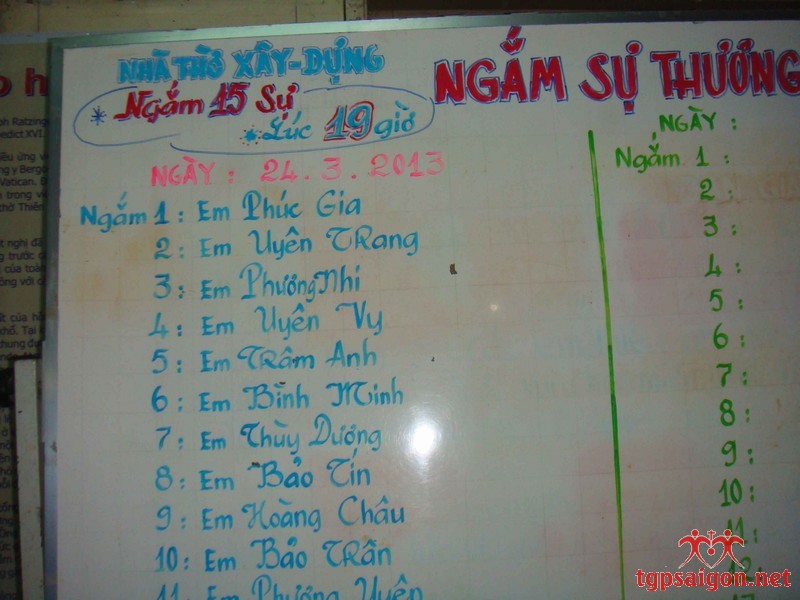 NHÀ THỜ XÂY-DỰNG
* Ngắm 15 Sự
* Lúc 19 giờ
NGÀY : 24.3.2013
Ngắm 1 : Em Phúc Gia
2 : Em Uyên Trang
3 : Em Phương Nhi
4 : Em Uyên Vy
5 : Em Trâm Anh
6 : Em Bình Minh
7 : Em Thùy Dương
8 : Em Bảo Tín
9 : Em Hoàng Châu
10 : Em Bảo Trân
11 : Em Phương Uyên
NGẮM SỰ THƯƠNG
NGÀY :
Ngắm 1 :
2 :
3 :
4 :
5 :
6 :
7 :
8 :
9 :
10 :
11 :
12 :
tgpsaigon.net